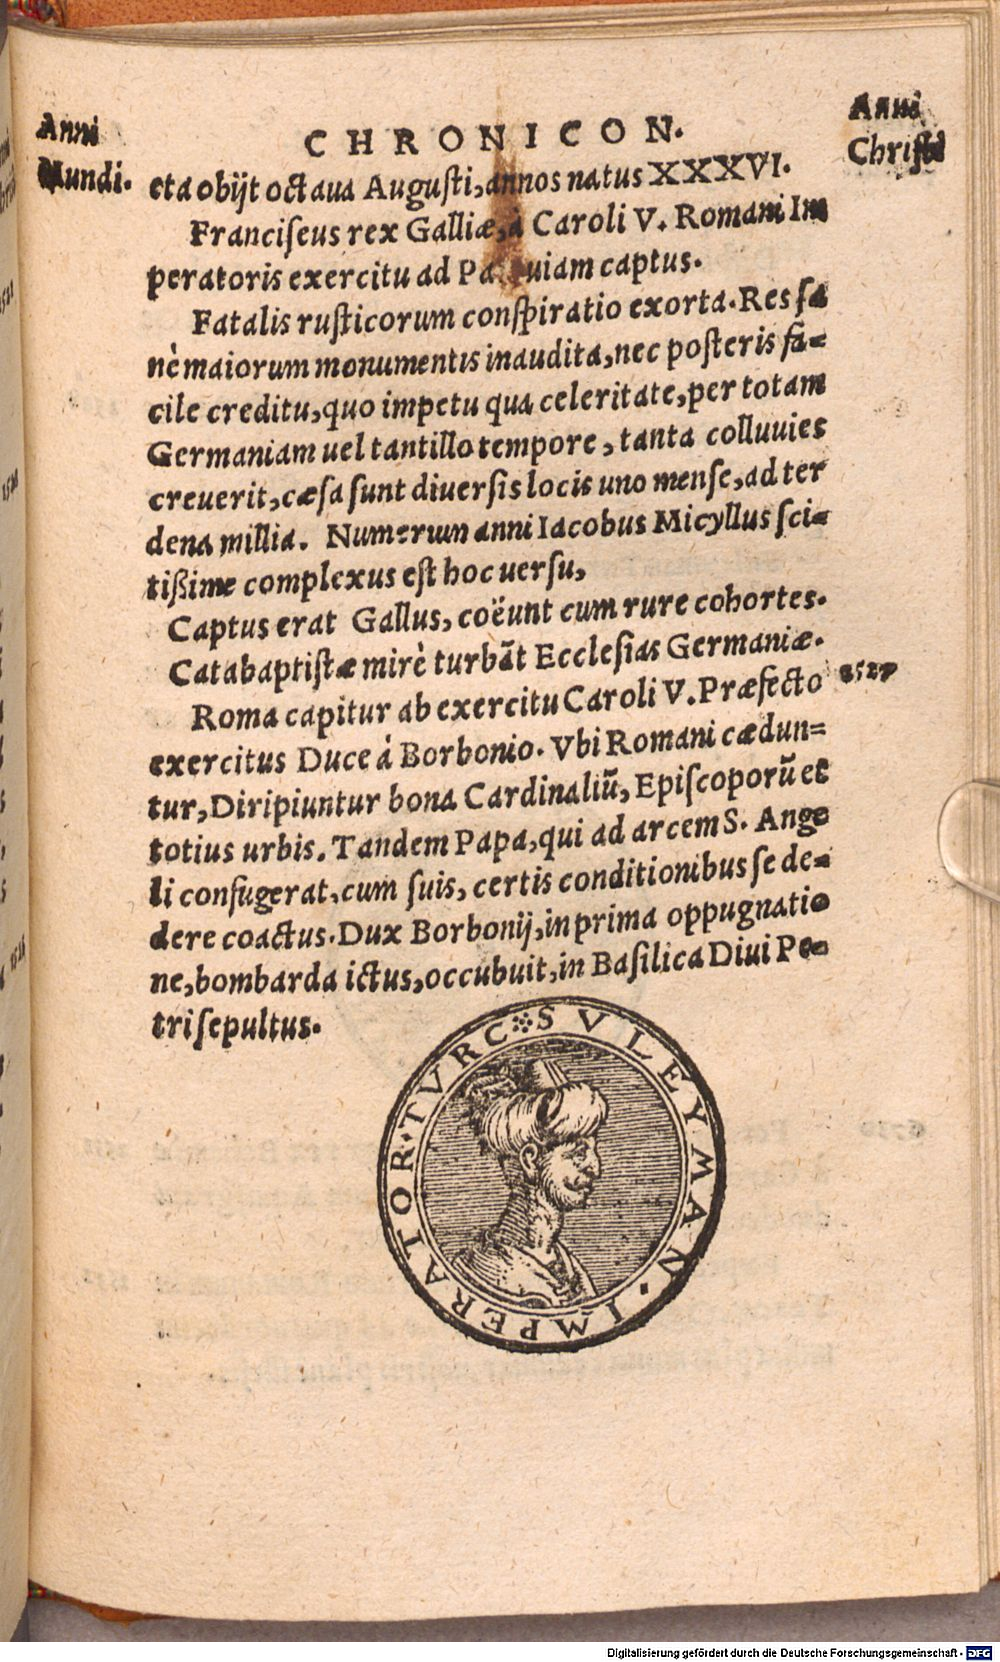 Anni
Mundi.
CHRONICON.
Anni
Christi
et a obijt octaua Augusti, annos natus XXXVI.
Franciſeus rex Galliæ, à Caroli V. Romani Im
peratoris exercitu ad Pa uiam captus.
Fatalis ruſticorum conſpiratio exorta. Res ſa
nè maiorum monumentis inaudita, nec poſteris fa=
cile creditu, quo impetu qua celeritate, per totam
Germaniam uel tantillo tempore, tanta colluuies
creuerit, cæſa ſunt diuerſis locis uno menſe, ad ter
dena millia. Numerum anni Iacobus Micyllus ſci=
tißime complexus eſt hoc uerſu,
Captus erat Gallus, coëunt cum rure cohortes.
Catabaptiſtæ mirè turbãt Eccleſias Germaniæ.
Roma capitur ab exercitu Caroli V. Præfecto 1527
exercitus Duce á Borbonio. Vbi Romani cædun=
tur, Diripiuntur bona Cardinaliũ, Epiſcoporũ et
totius urbis. Tandem Papa, qui ad arcem S. Ange
li confugerat, cum ſuis, certis conditionibus ſe de=
dere coactus. Dux Borbonij, in prima oppugnatio
ne, bombarda ictus, occubuit, in Baſilica Diui Pe=
tri ſepultus.
SVLEYMAN · IMPERATOR · TVRC
Digitalisierung gefördert durch die Deutsche Forschungsgemeinschaft - DFG